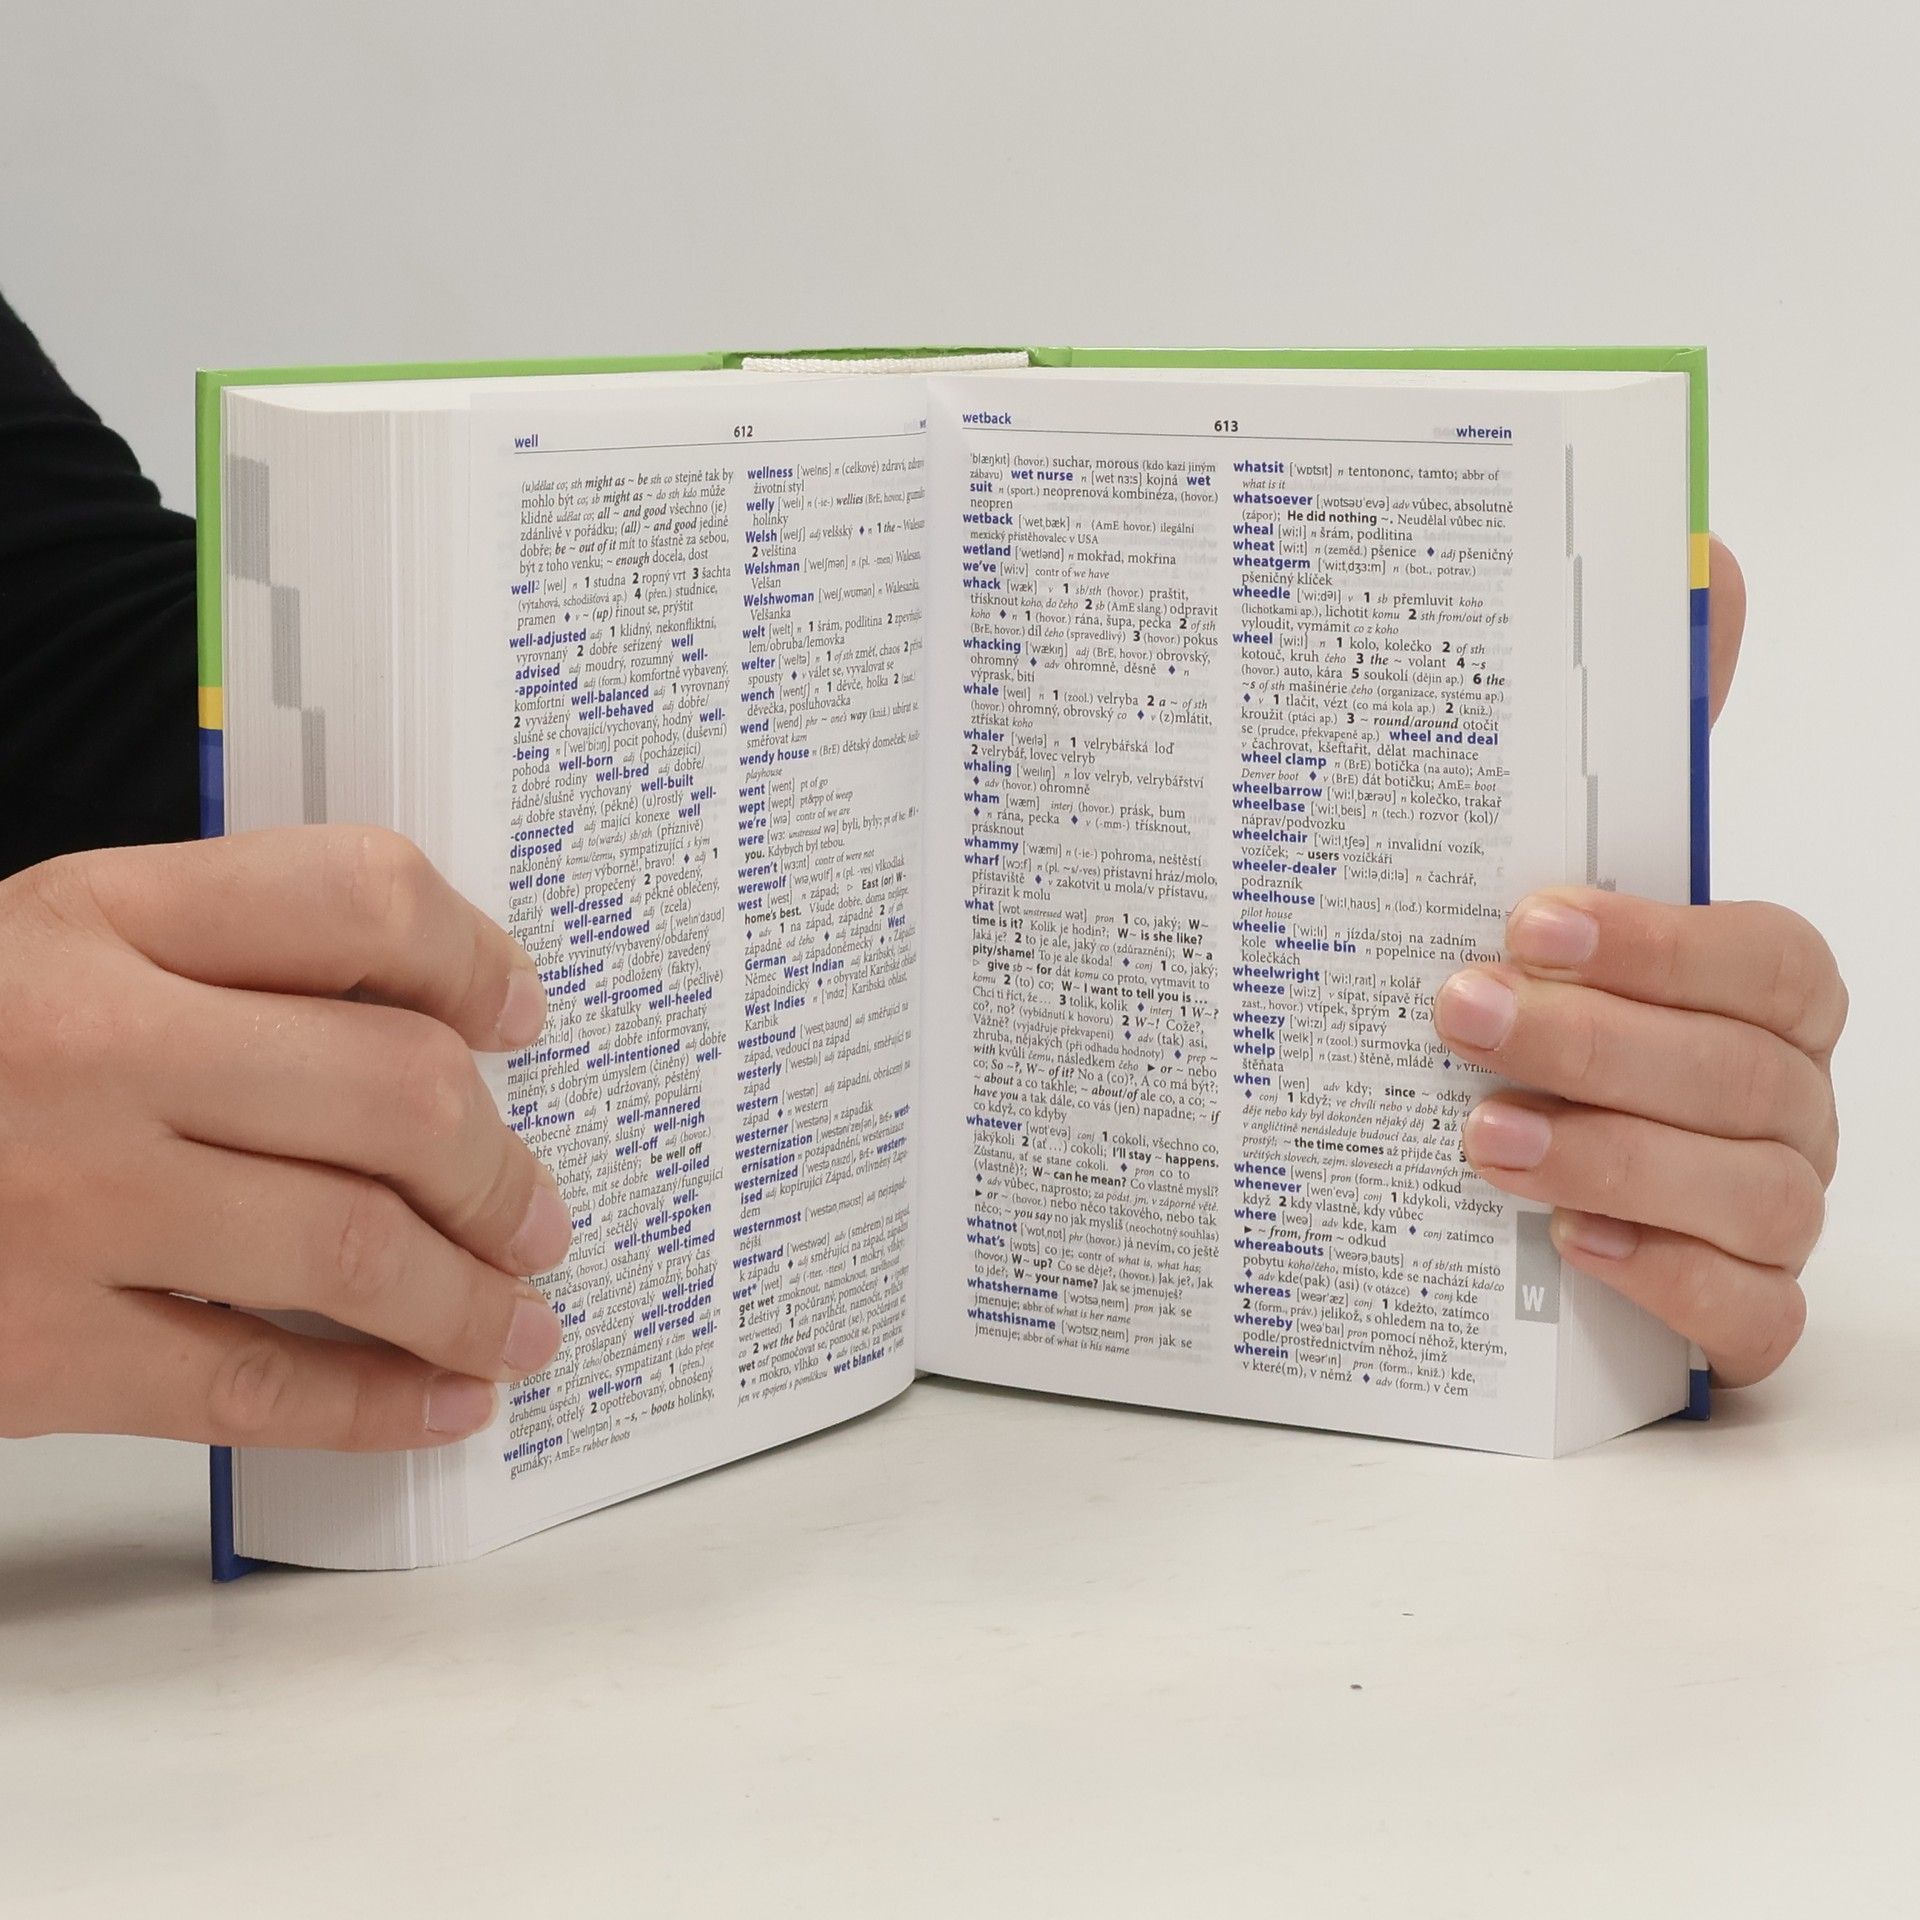 well
612
(u)dělat co; sth might as ~ be sth co stejně tak by
mohlo být co; sb might as ~ do sth kdo může
klidně udělat co; all ~ and good všechno (je)
zdánlivě v pořádku; (all) ~ and good jedině
dobře; be ~ out of it mít to šťastně za sebou,
být z toho venku; ~ enough docela, dost
well² [wel] n 1 studna 2 ropný vrt 3 šachta
(výtahová, schodišťová ap.) 4 (přen.) studnice,
pramen ♦ v ~ (up) řinout se, prýštit
well-adjusted adj 1 klidný, nekonfliktní,
vyrovnaný 2 dobře seřízený well
advised adj moudrý, rozumný well-
-appointed adj (form.) komfortně vybavený,
komfortní well-balanced adj 1 vyrovnaný
2 vyvážený well-behaved adj dobře/
slušně se chovající/vychovaný, hodný well-
-being n [ˈwelˈbiːɪŋ] pocit pohody, (duševní)
pohoda well-born adj (pocházející)
z dobré rodiny well-bred adj dobře/
řádně/slušně vychovaný well-built
adj dobře stavěný, (pěkně) (u)rostlý well-
-connected adj mající konexe well
disposed adj to(wards) sb/sth (příznivě)
nakloněný komu/čemu, sympatizující s kým
well done interj výborně!, bravo! ♦ adj 1
(gastr.) (dobře) propečený 2 povedený,
zdařilý well-dressed adj pěkně oblečený,
elegantní well-earned adj (zcela)
well-endowed adj
dobře vyvinutý/vybavený/obdařený
adj (dobře) zavedený
adj podložený (fakty),
well-groomed adj (pečlivě)
jako ze škatulky well-heeled
(hovor.) zazobaný, prachatý
well-informed adj dobře informovaný,
mající přehled well-intentioned adj dobře
míněný, s dobrým úmyslem (činěný) well-
-kept adj (dobře) udržovaný, pěstěný
well-known adj 1 známý, populární
všeobecně známý well-mannered
vychovaný, slušný well-nigh
téměř jaký well-off adj (hovor.)
bohatý, zajištěný; be well off
dobře, mít se dobře well-oiled
(publ.) dobře namazaný/fungující
adj zachovalý well-
sečtělý well-spoken
mluvící well-thumbed
(hovor.) osahaný well-timed
načasovaný, učiněný v pravý čas
adj (relativně) zámožný, bohatý
adj zcestovalý well-tried
osvědčený well-trodden
prošlapaný well versed adj in
sth dobře znalý čeho/obeznámený s čím well-
-wisher n příznivec, sympatizant (kdo přeje
druhému úspěch) well-worn adj 1 (přen.)
otřepaný, otřelý 2 opotřebovaný, obnošený
wellington [ˈwelɪŋtən] n ~s, ~ boots holínky,
gumáky; AmE= rubber boots
wellness [ˈwelnɪs] n (celkové) zdraví,
životní styl
welly [ˈweli] n (-ie-) wellies (BrE, hovor.)
holínky
Welsh [welʃ] adj velšský ♦ n 1 the ~
2 velština
Welshman [ˈwelʃmən] n (pl. -men) Walesan,
Velšan
Welshwoman [ˈwelʃˌwʊmən] n Walesanka,
Velšanka
welt [welt] n 1 šrám, podlitina 2
lem/obruba/lemovka
welter [ˈweltə] n 1 of sth změť, chaos 2
spousty ♦ v válet se, vyvalovat se
wench [wentʃ] n 1 děvče, holka 2
děvečka, posluhovačka
wend [wend] phr ~ one's way (kniž.) ubírat se,
směřovat kam
wendy house n (BrE) dětský domeček;
playhouse
went [went] pt of go
wept [wept] pt&pp of weep
we're [wɪə] contr of we are
were [wɜː unstressed wə] byli, byly; pt of be
you. Kdybych byl tebou.
weren't [wɜːnt] contr of were not
werewolf [ˈwɪəˌwʊlf] n (pl. -ves) vlkodlak
west [west] n západ; ▹ East (or) W-
home's best. Všude dobře, doma nejlépe.
♦ adv 1 na západ, západně 2 of sth
západně od čeho ♦ adj západní West
German adj západoněmecký ♦ n Západní
Němec West Indian adj karibský,
západoindický ♦ n obyvatel Karibské oblasti
West Indies n [ˈɪndɪz] Karibská oblast,
Karibik
westbound [ˈwestˌbaʊnd] adj směřující na
západ, vedoucí na západ
westerly [ˈwestəlɪ] adj západní, směřující na
západ
western [ˈwestən] adj západní, obrácený na
západ ♦ n western
westerner [ˈwestənə] n zápaďák
westernization [ˌwestənaɪˈzeɪʃən], BrE+ west-
ernisation n pozápadnění, westernizace
westernized [ˈwestəˌnaɪzd], BrE+ western-
ised adj kopírující Západ, ovlivněný Zápa-
dem
westernmost [ˈwestənˌməʊst] adj nejzápad-
nější
westward [ˈwestwəd] adv (směrem) na západ,
k západu ♦ adj směřující na západ, západní
wet* [wet] adj (-tter, -ttest) 1 mokrý, vlhký;
get wet zmoknout, namoknout, navlhnout
2 deštivý 3 počůraný, pomočený ♦ v
wet/wetted) 1 sth navlhčit, namočit, zvlhčit
co 2 wet the bed počůrat (se), počůrávat se
wet osf pomočovat se, pomočit se, počůrat se
♦ n mokro, vlhko ♦ adv (tech.) za mokra
jen ve spojení s pomlčkou wet blanket n [wet
wetback
613
wherein
ˈblæŋkɪt] (hovor.) suchar, morous (kdo kazí jiným
zábavu) wet nurse n [wet nɜːs] kojná wet
suit n (sport.) neoprenová kombinéza, (hovor.)
neopren
wetback [ˈwetˌbæk] n (AmE hovor.) ilegální
mexický přistěhovalec v USA
wetland [ˈwetlənd] n mokřad, mokřina
we've [wiːv] contr of we have
whack [wæk] v 1 sb/sth (hovor.) praštit,
třísknout koho, do čeho 2 sb (AmE slang.) odpravit
koho ♦ n 1 (hovor.) rána, šupa, pecka 2 of sth
(BrE, hovor.) díl čeho (spravedlivý) 3 (hovor.) pokus
whacking [ˈwækɪŋ] adj (BrE, hovor.) obrovský,
ohromný ♦ adv ohromně, děsně ♦ n
výprask, bití
whale [weɪl] n 1 (zool.) velryba 2 a ~ of sth
(hovor.) ohromný, obrovský co ♦ v (z)mlátit,
ztřískat koho
whaler [ˈweɪlə] n 1 velrybářská loď
2 velrybář, lovec velryb
whaling [ˈweɪlɪŋ] n lov velryb, velrybářství
♦ adv (hovor.) ohromně
wham [wæm] interj (hovor.) prásk, bum
♦ n rána, pecka ♦ v (-mm-) třísknout,
prásknout
whammy [ˈwæmi] n (-ie-) pohroma, neštěstí
wharf [wɔːf] n (pl. ~s/-ves) přístavní hráz/molo,
přístaviště ♦ v zakotvit u mola/v přístavu,
přirazit k molu
what [wɒt unstressed wət] pron 1 co, jaký; W~
time is it? Kolik je hodin?; W~ is she like?
Jaká je? 2 to je ale, jaký co (zdůraznění); W~ a
pity/shame! To je ale škoda! ♦ conj 1 co, jaký;
▹ give sb ~ for dát komu co proto, vytmavit to
komu 2 (to) co; W~ I want to tell you is ...
Chci ti říct, že ... 3 tolik, kolik ♦ interj 1 W~?
co?, no? (vybídnutí k hovoru) 2 W~! Cože?,
Vážně? (vyjadřuje překvapení) ♦ adv (tak) asi,
zhruba, nějakých (při odhadu hodnoty) ♦ prep ~
with kvůli čemu, následkem čeho ► or ~ nebo
co; So ~?, W~ of it? No a (co)?, A co má být?;
~ about a co takhle; ~ about/of ale co, a co; ~
have you a tak dále, co vás (jen) napadne; ~ if
co když, co kdyby
whatever [wɒtˈevə] conj 1 cokoli, všechno co,
jakýkoli 2 (ať ...) cokoli; I'll stay ~ happens.
Zůstanu, ať se stane cokoli. ♦ pron co to
(vlastně)?; W~ can he mean? Co vlastně myslí?
♦ adv vůbec, naprosto; za podst. jm. v záporné větě.
► or ~ (hovor.) nebo něco takového, nebo tak
něco; ~ you say no jak myslíš (neochotný souhlas)
whatnot [ˈwɒtˌnɒt] phr (hovor.) já nevím, co ještě
what's [wɒts] co je; contr of what is, what has;
(hovor.) W~ up? Co se děje?, (hovor.) Jak je?, Jak
to jde?; W~ your name? Jak se jmenuješ?
whatshername [ˈwɒtsəˌneɪm] pron jak se
jmenuje; abbr of what is her name
whatshisname [ˈwɒtsɪzˌneɪm] pron jak se
jmenuje; abbr of what is his name
whatsit [ˈwɒtsɪt] n tentononc, tamto; abbr of
what is it
whatsoever [ˌwɒtsəʊˈevə] adv vůbec, absolutně
(zápor); He did nothing ~. Neudělal vůbec nic.
wheal [wiːl] n šrám, podlitina
wheat [wiːt] n (zeměd.) pšenice ♦ adj pšeničný
wheatgerm [ˈwiːtˌdʒɜːm] n (bot., potrav.)
pšeničný klíček
wheedle [ˈwiːdəl] v 1 sb přemluvit koho
(lichotkami ap.), lichotit komu 2 sth from/out of sb
vyloudit, vymámit co z koho
wheel [wiːl] n 1 kolo, kolečko 2 of sth
kotouč, kruh čeho 3 the ~ volant 4 ~s
(hovor.) auto, kára 5 soukolí (dějin ap.) 6 the
~s of sth mašinérie čeho (organizace, systému ap.)
♦ v 1 tlačit, vézt (co má kola ap.) 2 (kniž.)
kroužit (ptáci ap.) 3 ~ round/around otočit
se (prudce, překvapeně ap.) wheel and deal
v čachrovat, kšeftařit, dělat machinace
wheel clamp n (BrE) botička (na auto); AmE=
Denver boot ♦ v (BrE) dát botičku; AmE= boot
wheelbarrow [ˈwiːlˌbærəʊ] n kolečko, trakař
wheelbase [ˈwiːlˌbeɪs] n (tech.) rozvor (kol)/
náprav/podvozku
wheelchair [ˈwiːlˌtʃeə] n invalidní vozík,
vozíček; ~ users vozíčkáři
wheeler-dealer [ˈwiːləˌdiːlə] n čachrář,
podrazník
wheelhouse [ˈwiːlˌhaʊs] n (loď.) kormidelna; =
pilot house
wheelie [ˈwiːlɪ] n jízda/stoj na zadním
kole wheelie bin n popelnice na (dvou)
kolečkách
wheelwright [ˈwiːlˌraɪt] n kolář
wheeze [wiːz] v sípat, sípavě říct
zast., hovor.) vtípek, šprým 2 (za)
wheezy [ˈwiːzɪ] adj sípavý
whelk [welk] n (zool.) surmovka
whelp [welp] n (zast.) štěně, mládě ♦ v
štěňata
when [wen] adv kdy; since ~ odkdy
♦ conj 1 když; ve chvíli nebo v době kdy
děje nebo kdy byl dokončen nějaký děj 2 až
v angličtině nenásleduje budoucí čas, ale čas
prostý!; ~ the time comes až přijde čas 3
určitých slovech, zejm. slovesech a přídavných
whence [wens] pron (form., kniž.) odkud
whenever [wenˈevə] conj 1 kdykoli, vždycky
když 2 kdy vlastně, kdy vůbec
where [weə] adv kde, kam ♦ conj zatímco
► ~ from, from ~ odkud
whereabouts [ˈweərəˌbaʊts] n of sb/sth místo
pobytu koho/čeho, místo, kde se nachází kdo/co
♦ adv kde(pak) (asi) (v otázce) ♦ conj kde
whereas [weərˈæz] conj 1 kdežto, zatímco
2 (form., práv.) jelikož, s ohledem na to, že
whereby [weəˈbaɪ] pron pomocí něhož, kterým,
podle/prostřednictvím něhož, jímž
wherein [weərˈɪn] pron (form., kniž.) kde,
v které(m), v němž ♦ adv (form.) v čem
W